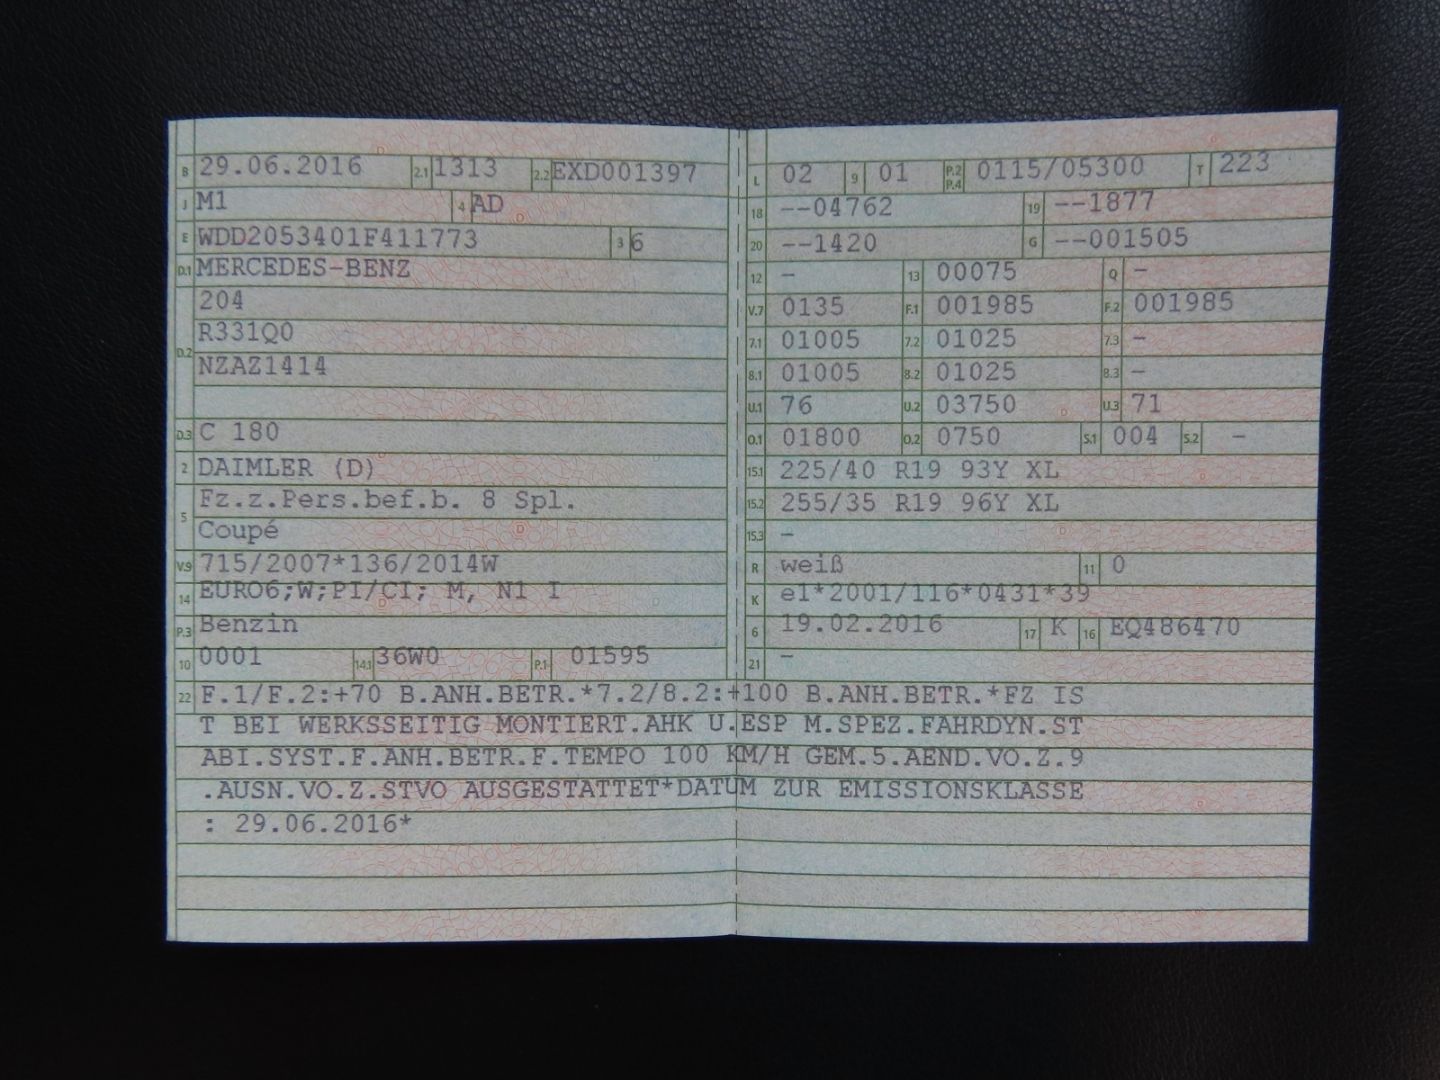 B 29.06.2016 2.1 1313 2.2 EXD001397
J M1 4 AD
E WDD2053401F411773 3 6
D.1 MERCEDES-BENZ
204
R331Q0
D.2
NZAZ1414
D.3 C 180
2 DAIMLER (D)
Fz.z.Pers.bef.b. 8 Spl.
5
Coupé
V.9 715/2007*136/2014W
14 EURO6;W;PI/CI; M, N1 I
P.3 Benzin
10 0001 14.1 36W0 P.1 01595
L 02 9 01 P.2 P.4 0115/05300 T 223
18 --04762 19 --1877
20 --1420 G --001505
12 - 13 00075 Q -
V.7 0135 F.1 001985 F.2 001985
7.1 01005 7.2 01025 7.3 -
8.1 01005 8.2 01025 8.3 -
U.1 76 U.2 03750 U.3 71
O.1 01800 O.2 0750 S.1 004 S.2 -
15.1 225/40 R19 93Y XL
15.2 255/35 R19 96Y XL
15.3 -
R weiß 11 0
K e1*2001/116*0431*39
6 19.02.2016 17 K 16 EQ486470
21 -
22 F.1/F.2:+70 B.ANH.BETR.*7.2/8.2:+100 B.ANH.BETR.*FZ IS
T BEI WERKSSEITIG MONTIERT.AHK U.ESP M.SPEZ.FAHRDYN.ST
ABI.SYST.F.ANH.BETR.F.TEMPO 100 KM/H GEM.5.AEND.VO.Z.9
.AUSN.VO.Z.STVO AUSGESTATTET*DATUM ZUR EMISSIONSKLASSE
: 29.06.2016*